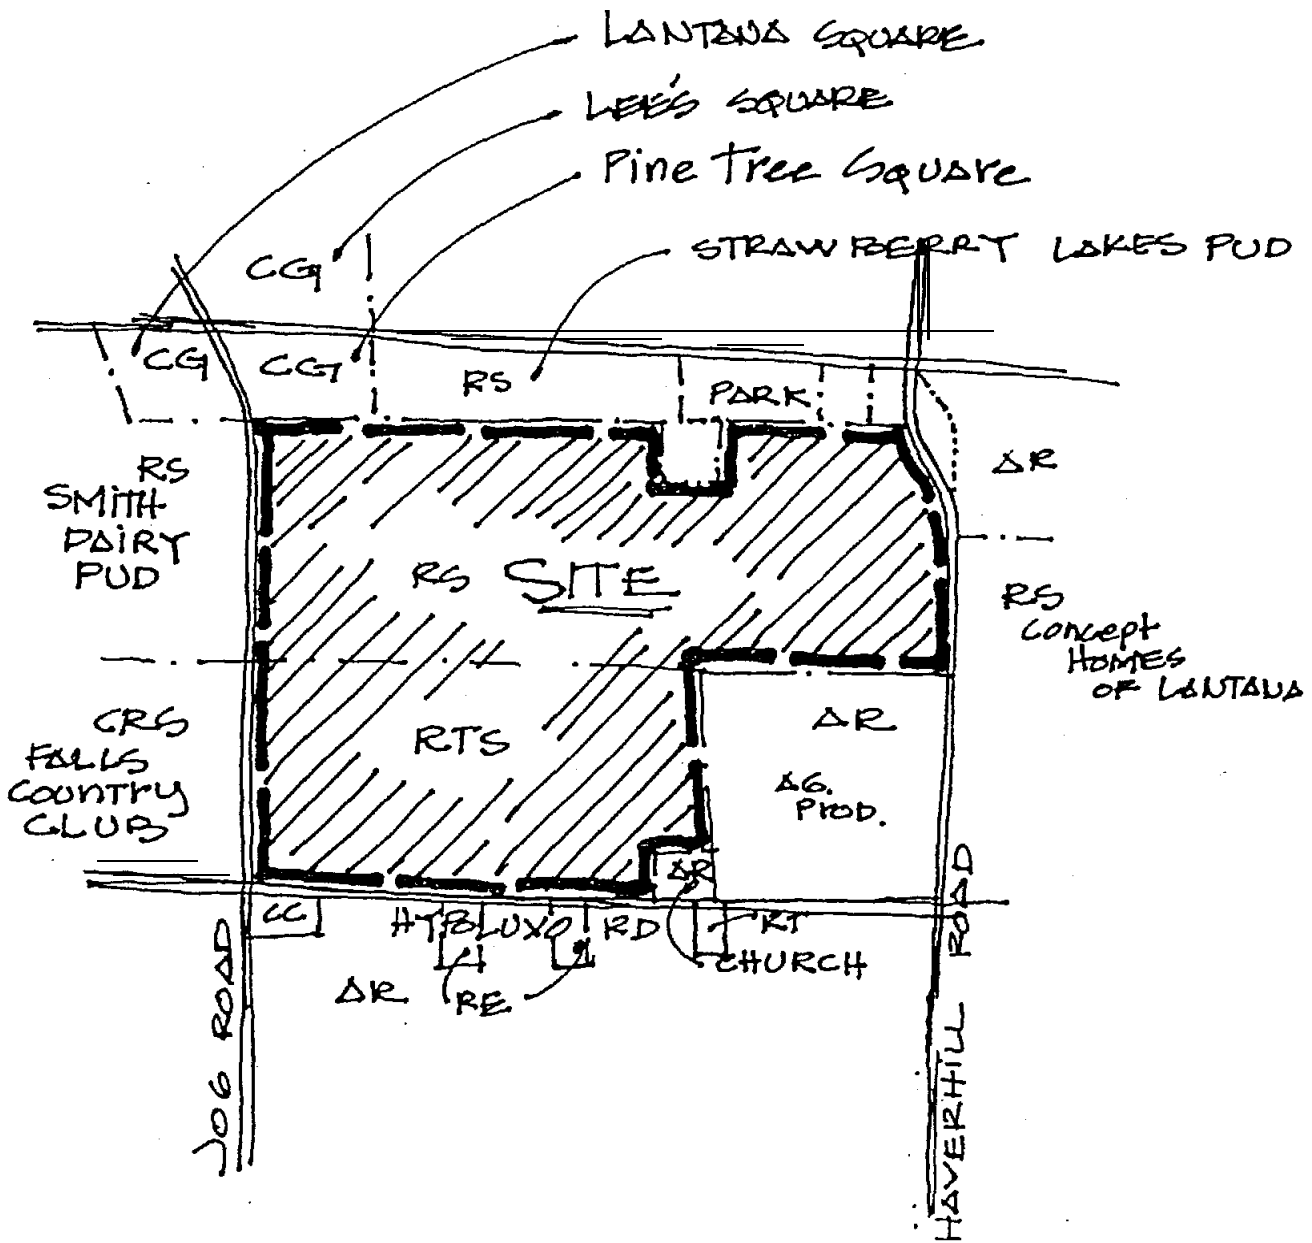 LANTANA SQUARE
LEE'S SQUARE
Pine Tree Square
STRAWBERRY LAKES PUD
CG
CG
CG
RS
PARK
RS
SMITH
DAIRY
PUD
AR
RS SITE
RS
Concept
HOMES
OF LANTANA
CRS
FALLS
COUNTRY
CLUB
RTS
AR
AG.
Prod.
AR
CC
HYPOLUXO RD
RT
CHURCH
AR
RE
JOG ROAD
HAVERHILL ROAD